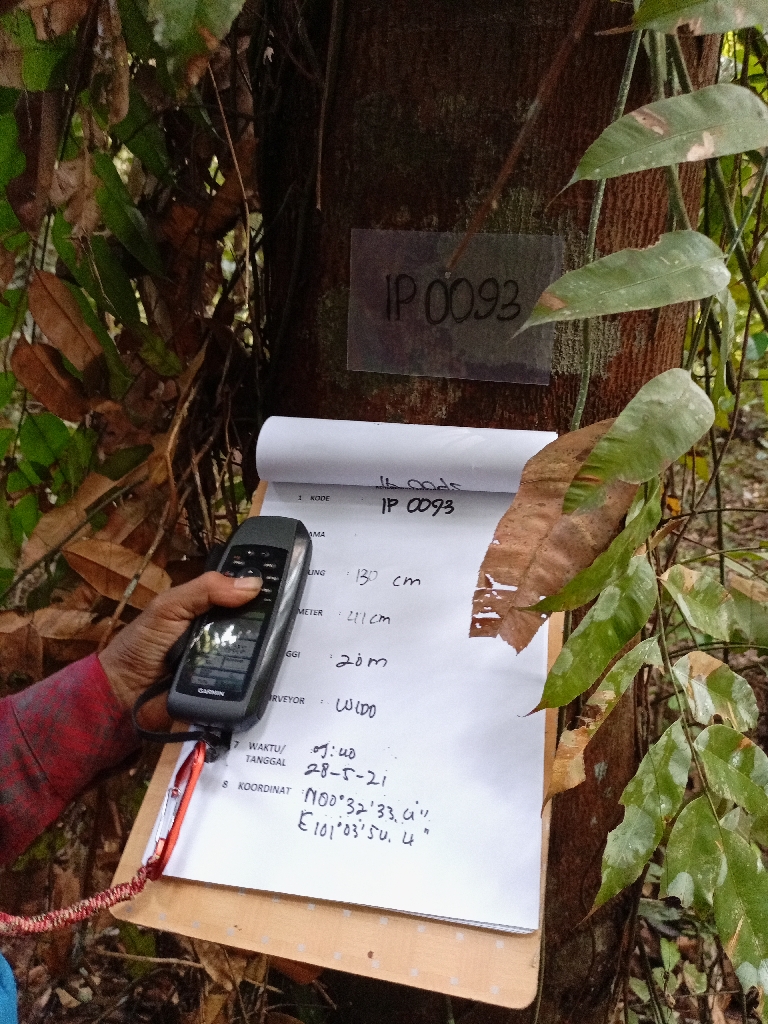 IP 0093
1 KODE IP 0093
AMA :
LING : 130 cm
METER : 41 cm
GGI : 20 m
RVEYOR : WIDO
GARMIN
7 WAKTU/
TANGGAL 28-5-21
8 KOORDINAT : N00°32'33.4"
E101°03'54.4"